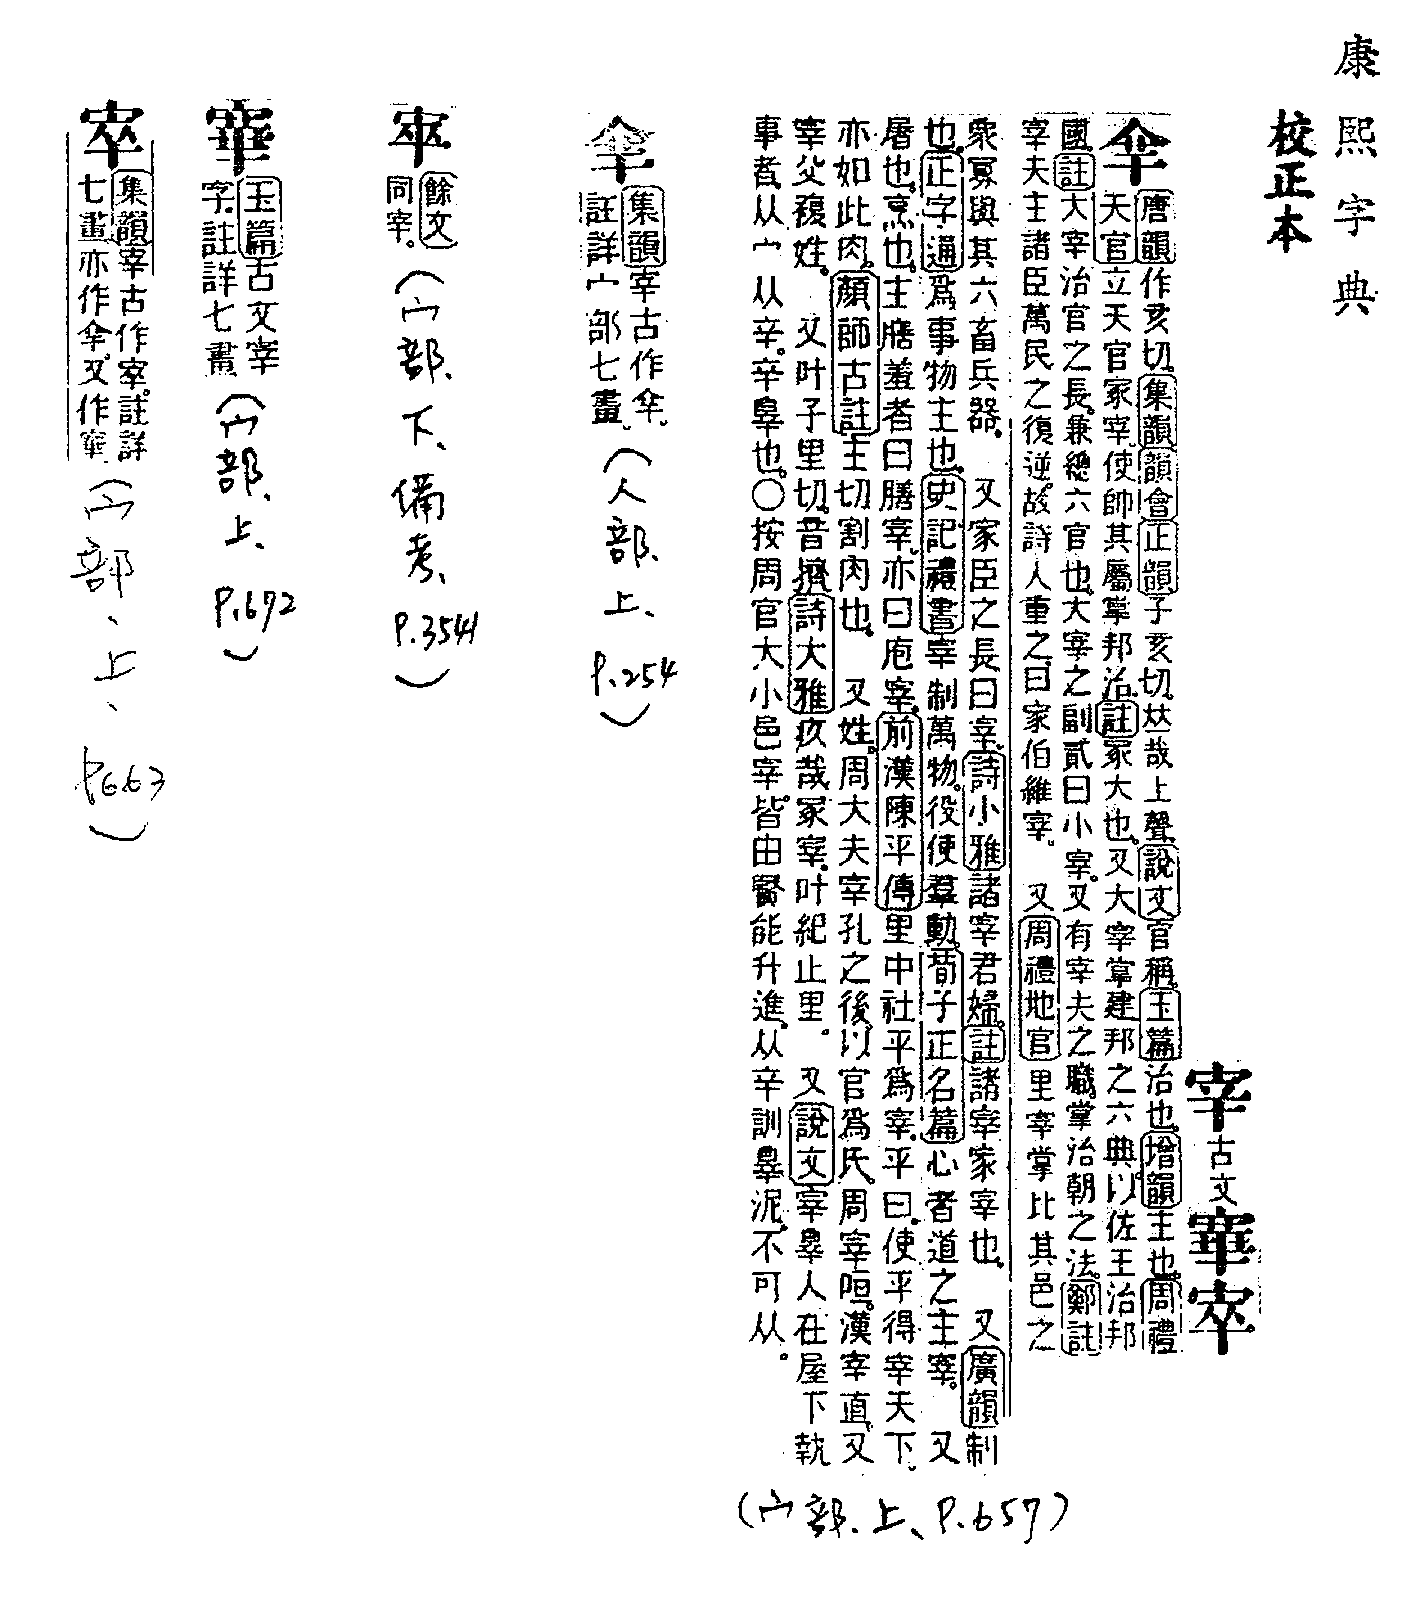 康熙字典
校正本
宰 古文 𡩦 𡨧
𠆼 唐韻作亥切。集韻韻會正韻子亥切。𠀤哉上聲。說文官稱。玉篇治也。增韻主也。周禮
天官立天官冢宰。使帥其屬掌邦治。註冢大也。又大宰掌建邦之六典。以佐王治邦
國。註大宰治官之長。兼總六官也。大宰之副貳曰小宰。又有宰夫之職。掌治朝之法。鄭註
宰夫主諸臣萬民之復逆。故詩人重之。曰家伯維宰。 又周禮地官里宰掌比其邑之
衆寡與其六畜兵器。 又家臣之長曰宰。詩小雅諸宰君婦。註諸宰家宰也。 又廣韻制
也。正字通爲事物主也。史記禮書宰制萬物。役使羣動。荀子正名篇心者道之主宰。 又
屠也。烹也。主膳羞者曰膳宰。亦曰庖宰。前漢陳平傳里中社平爲宰。平曰。使平得宰天下。
亦如此肉。顏師古註主切割肉也。 又姓。周大夫宰孔之後。以官爲氏。周宰咺。漢宰直。又
宰父複姓。 又叶子里切。音擠。詩大雅疚哉冢宰。叶紀止里。 又說文宰辠人在屋下執
事者。从宀从辛。辛辠也。〇按周官大小邑宰。皆由賢能升進。从辛訓辠。泥。不可从。
(宀部、上、P.657)
𠆼 集韻宰古作𠆼。
註詳宀部七畫。
(人部、上、P.254)
餘文
同宰。
(宀部、下、備考、P.3541)
𡩦 玉篇古文宰
字。註詳七畫
(宀部、上、P.672)
𡨧 集韻宰古作𡨧。註詳
七畫亦作𠆼。又作𡩦
(宀部、上、P.663)